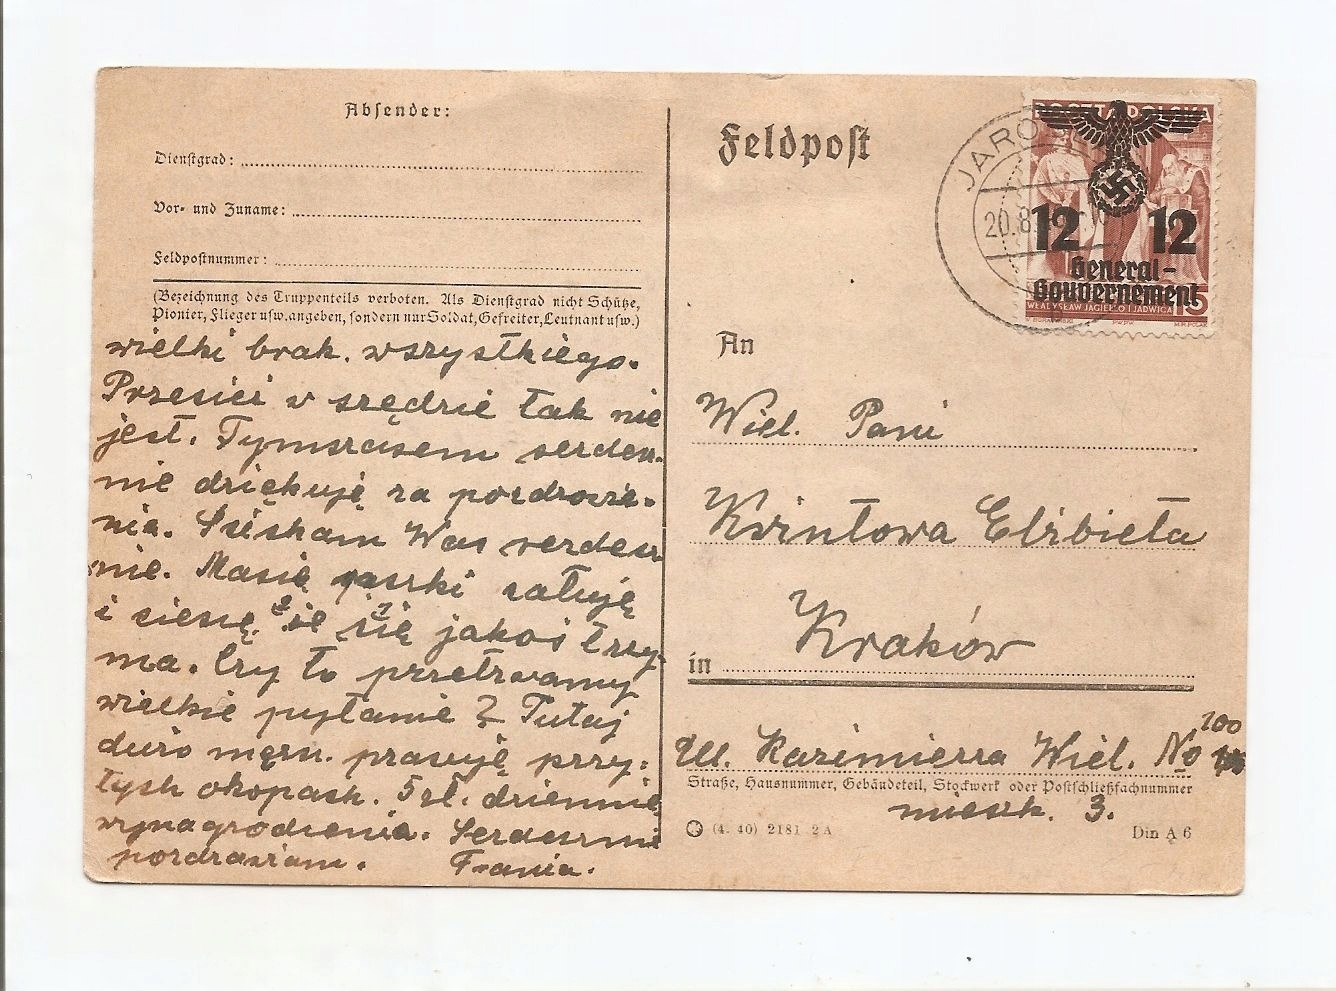 Absender:
Dienstgrad:
Vor- und Zuname:
Feldpostnummer:
(Bezeichnung des Truppenteils verboten. Als Dienstgrad nicht Schütze,
Pionier, Flieger usw. angeben, sondern nur Soldat, Gefreiter, Leutnant usw.)
wielki brak. wszystkiego.
Przecież w szędzie tak nie
jest. Tymczasem serdecz-
nie dziękuję za pozdrowie-
nia. Ściskam Was serdecz
nie. Masię całuję
i cieszę że się jakoś trzy-
ma. Czy to przetrwamy
wielkie pytanie? Tutaj
dużo męzcz. pracuje przy
tych okopach. 5 zł. dziennie
wynagrodzenia. Serdecznie
pozdrawiam. Frania.
Feldpost
JARO
20.8.
POCZTA POLSKA
12 12
General-
Gouvernement
15
WŁADYSŁAW JAGIEŁŁO I JADWIGA
An
Wiel. Pani
Kwintowa Elżbieta
Kraków
in
100
Ul. Kazimierza Wiel. No
Straße, Hausnummer, Gebäudeteil, Stockwerk oder Postschließfachnummer
mieszk. 3.
(4. 40) 2181 2A
Din A 6